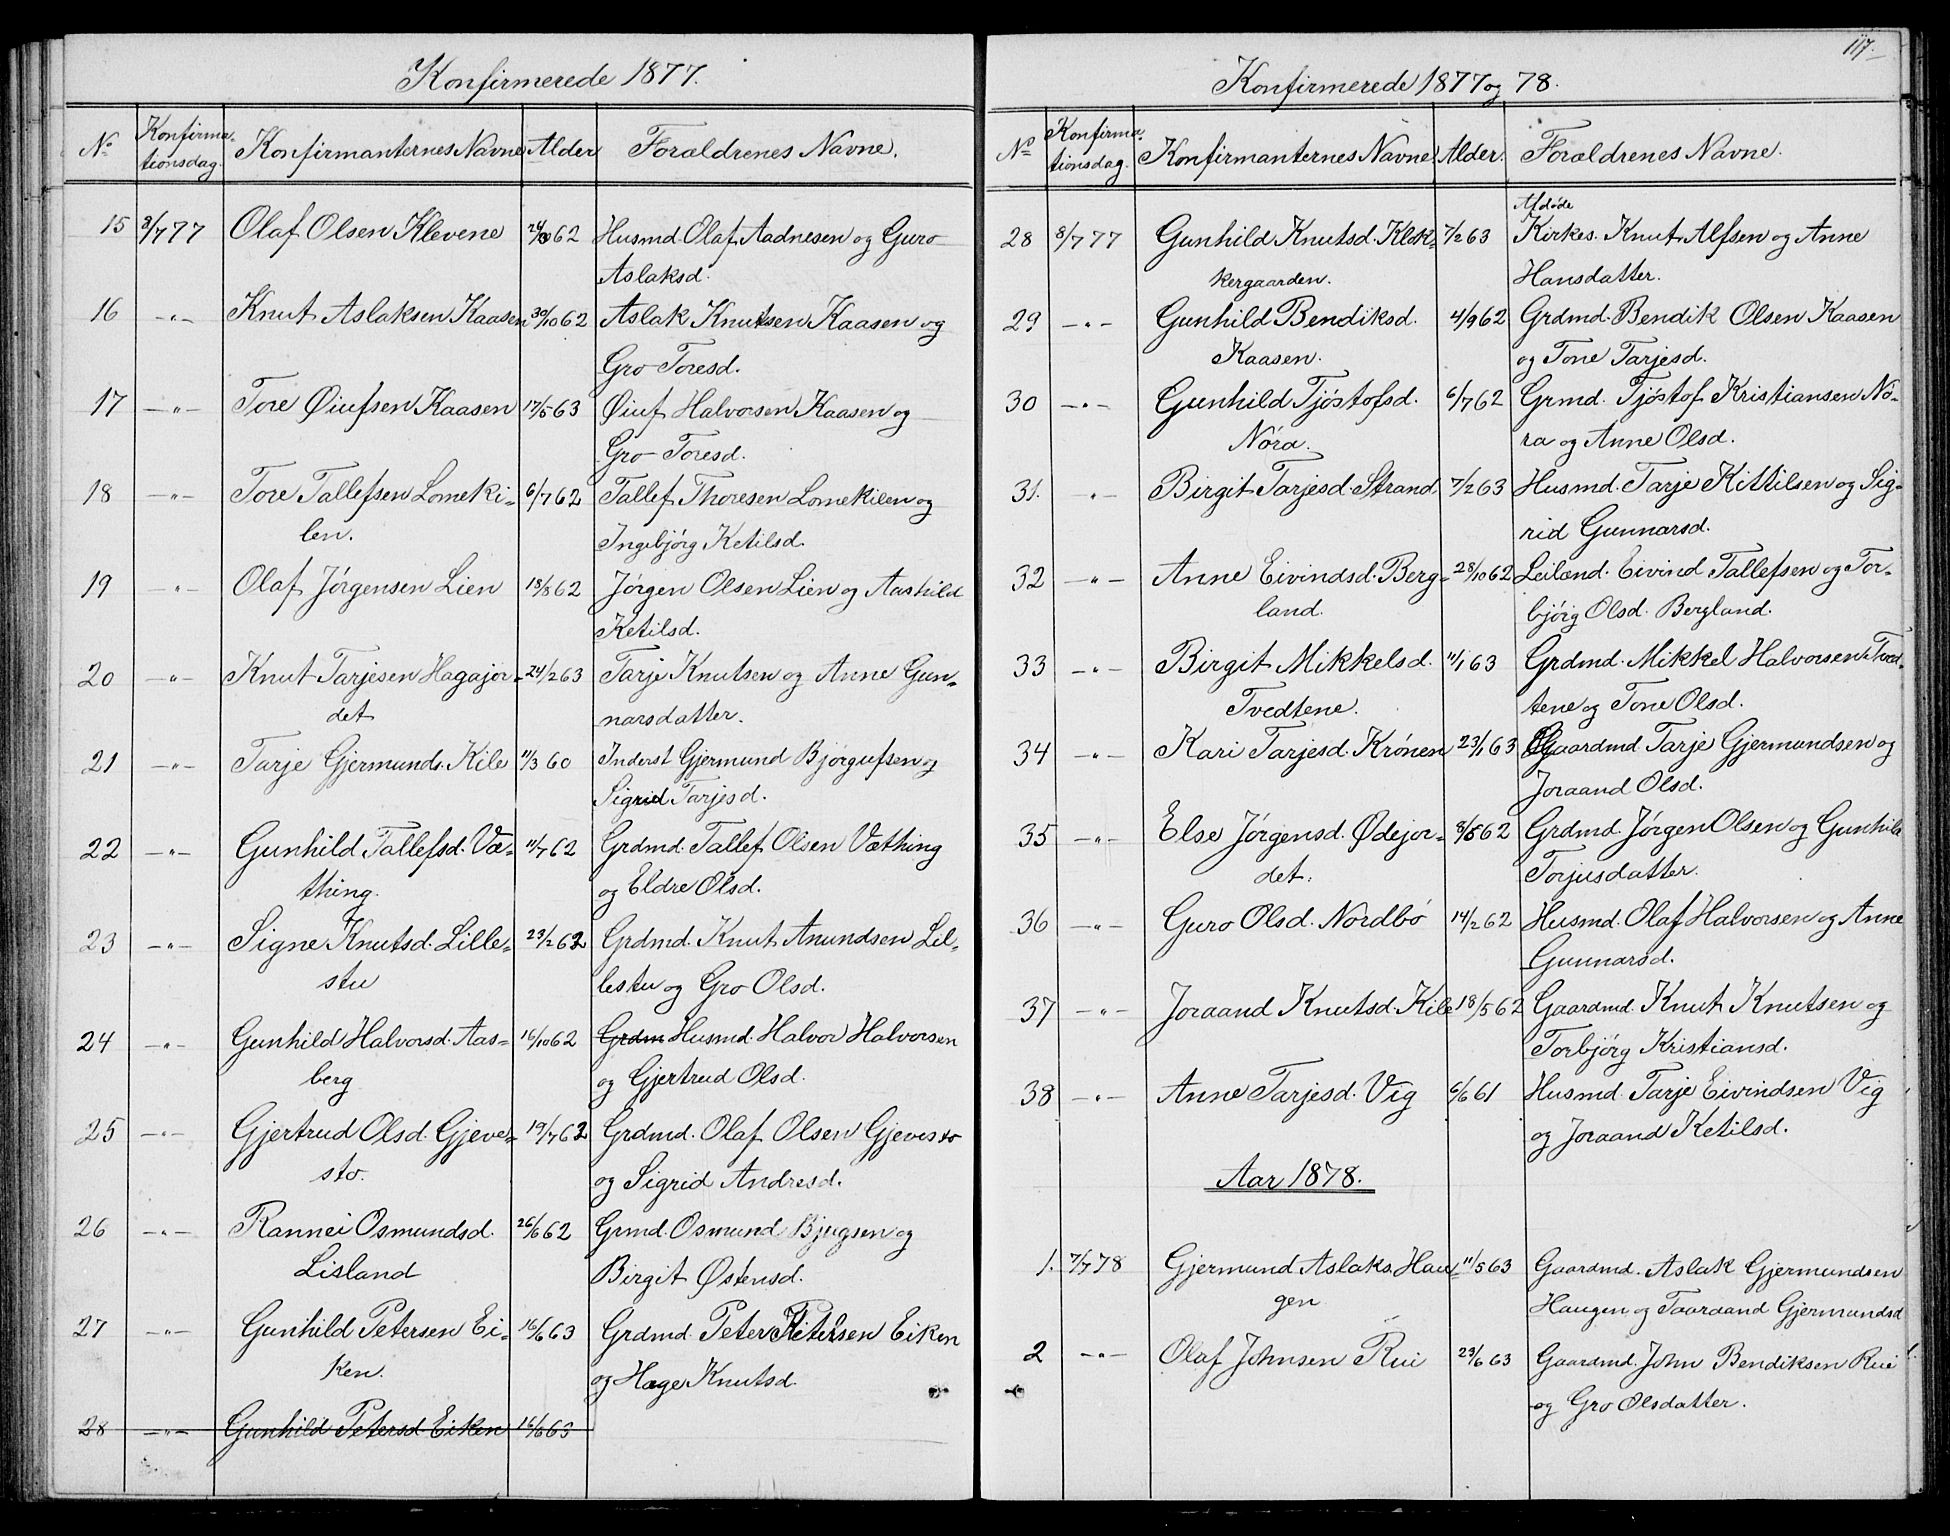 Konfirmerede 1877.
No Konfirma- tionsdag. Konfirmanternes Navne Alder Forældrenes Navne.
15 8/7 77 Olaf Olsen Klevene 62 Husmd. Olaf Aadnesen og Guro
Aslaksd.
16 -"- Knut Aslaksen Kaasen 30/10 62 Aslak Knutsen Kaasen og
Gro Toresd.
17 -"- Tore Øiufsen Kaasen 17/5 63 Øiuf Halvorsen Kaasen og
Gro Toresd.
18 -"- Tore Tallefsen Lomeki- 6/7 62 Tallef Thoresen Lomekilen og
len. Ingebjörg Ketilsd.
19 -"- Olaf Jörgensen Lien 18/8 62 Jörgen Olsen Lien og Aashild
Ketilsd.
20 -"- Knut Tarjesen Hagajor- 24/2 63 Tarje Knutsen og Anne Gun-
det narsdatter.
21 -"- Tarje Gjermunds. Kile 11/3 60 Inderst Gjermund Björgufsen og
Sigrid Tarjesd.
22 -"- Gunhild Tallefsd. Væ- 11/7 62 Grdmd. Tallef Olsen Væthing
thing. og Eldre Olsd.
23 -"- Signe Knutsd. Lille- 23/2 62 Grdmd. Knut Anundsen Lil-
stu lestu og Gro Olsd.
24 -"- Gunhild Halvorsd. Aas- 16/10 62 Grdm Husmd. Halvor Halvorsen
berg og Gjertrud Olsd.
25 -"- Gjertrud Olsd. Gjeve- 19/7 62 Grdmd. Olaf Olsen Gjevesto
sto. og Sigrid Andresd.
26 -"- Rannei Osmundsd. 26/6 62 Grmd. Osmund Bjugsen og
Lisland Birgit Østensd.
27 -"- Gunhild Petersen Ei- 16/6 63 Grdmd. Peter Petersen Eiken
ken. og Hæge Knutsd.
28 -"- Gunhild Petersd Eiken 16/6 63
117.
Konfirmerede 1877 og 78.
No Konfirma- tionsdag. Konfirmanternes Navne Alder. Forældrenes Navne.
Afdøde
28 8/7 77 Gunhild Knutsd. Klok- 7/2 63 Kirkes. Knut Alfsen og Anne
kergaarden. Hansdatter.
29 -"- Gunhild Bendiksd. 4/9 62 Grdmd. Bendik Olsen Kaasen
Kaasen. og Tone Tarjesd.
30 -"- Gunhild Tjöstofsd. 6/7 62 Grmd. Tjöstof Kristiansen Nö-
Nöra. ra og Anne Olsd.
31. " - Birgit Tarjesd. Strand. 7/2 63 Husmd. Tarje Kittilsen og Sig-
rid Gunnarsd.
32 -"- Anne Eivindsd. Berg- 28/10 62 Leilænd. Eivind Tallefsen og Tor-
land. björg Olsd. Bergland.
33 -"- Birgit Mikkelsd. 11/1 63 Grdmd. Mikkel Halvorsen Tved-
Tvedtene. tene og Tone Olsd.
34 -"- Kari Tarjesd. Krónen 23/1 63 Gaardmd Tarje Gjermundsen og
Joraand Olsd.
35 -"- Else Jörgensd. Ødejor- 8/5 62 Grdmd. Jörgen Olsen og Gunhild
det. Torjusdatter.
36 -"- Guro Olsd. Nordbö 14/2 62 Husmd. Olaf Halvorsen og Anne
Gunnarsd.
37 -"- Joraand Knutsd. Kile 18/5 62 Gaardmd. Knut Knutsen og
Torbjörg Kristiansd.
38 -"- Anne Tarjesd. Vig 6/6 61 Husmd. Tarje Eivindsen Vig
og Joraand Ketilsd.
Aar 1878.
1. 7/7 78 Gjermund Aslaks. Hau- 11/5 63 Gaardmd. Aslak Gjermundsen
gen Haugen og Taaraand Gjermundsd
2 -"- Olaf Johnsen Rui 23/6 63 Gaardmd. John Bendiksen Rui
og Gro Olsdatter.